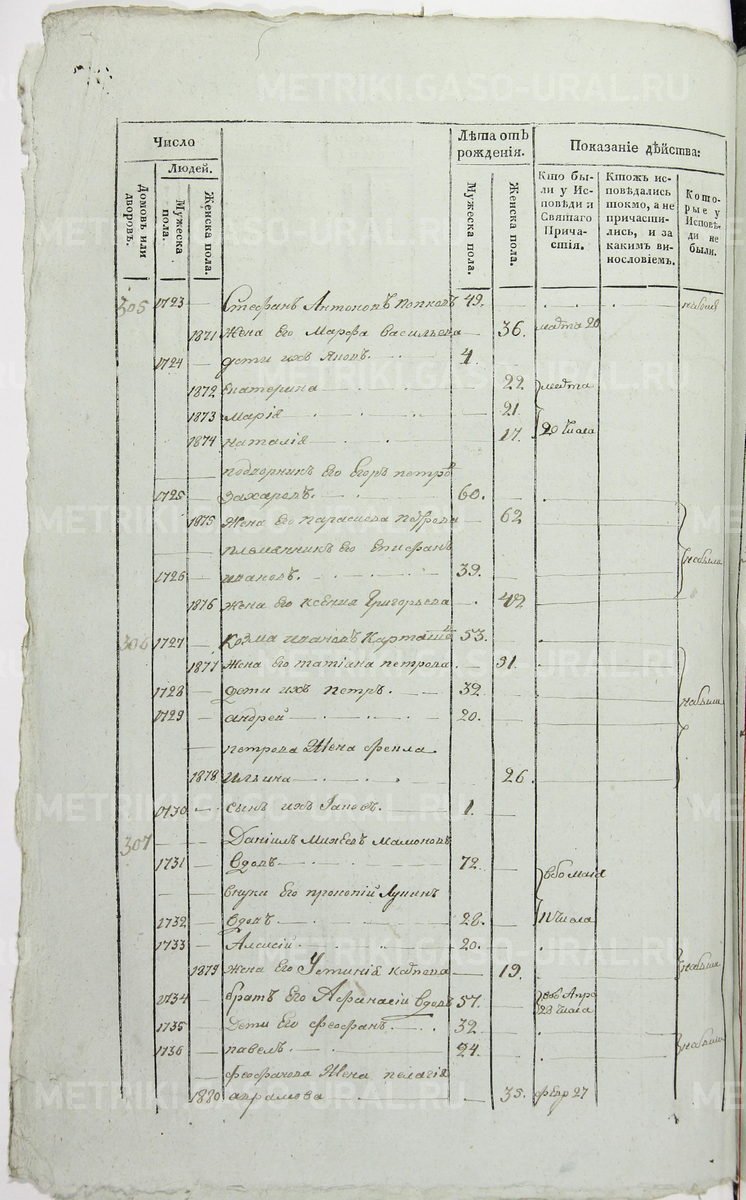 METRIKI.GASO-URAL.RU
Число
Людей.
Домовъ или дворовъ.
Мужеска пола.
Женска пола.
Лѣта отъ рожденія.
Мужеска пола.
Женска пола.
Показаніе дѣйства:
Кто были у Исповѣди и Святаго Причастія.
Ктожъ исповѣдались токмо, а не причастились, и за какимъ винословіемъ.
Которые у Исповѣди не были.
305 1723 Стефанъ Антоновъ Попковъ 49. небылъ
1871 Жена Его Марфа Васильева 36. марта 20
1724 дети ихъ Яковъ. 4.
1872 Екатерина 22. марта
1873 Марія 21.
1874 наталія 17. 20 Числа
подворникъ Его Егоръ петровъ
1725 Захаровъ. 60.
1875 Жена Его Параскева 62
племянникъ Его Епифанъ
1726 ивановъ. 39. небыли
1876 Жена Его Ксения Григорьева 42
306 1727 Козма ивановъ 53.
1877 Жена Его татіана петрова. 31.
1728 Дети ихъ Петръ. 32. небыли
1729 андрей 20.
петрова Жена Фекла
1878 Ильина 26
1730 сынъ ихъ Іаковъ. 1.
307 Даніилъ Мамоновъ
1731 Вдовъ 72. маія
внуки Его прокопій
1732 Вдовъ 28. 11 Числа
1733 Алексій 20.
1879 Жена Его Устинія карпова 19. небыли
1734 братъ Его Афанасіи Вдовъ 57. Апре 23 Числа
1735 Дети Его феофанъ. 32
1736 павелъ 24. небыли
Жена пелагія
1880 аврамова 35. февр 27